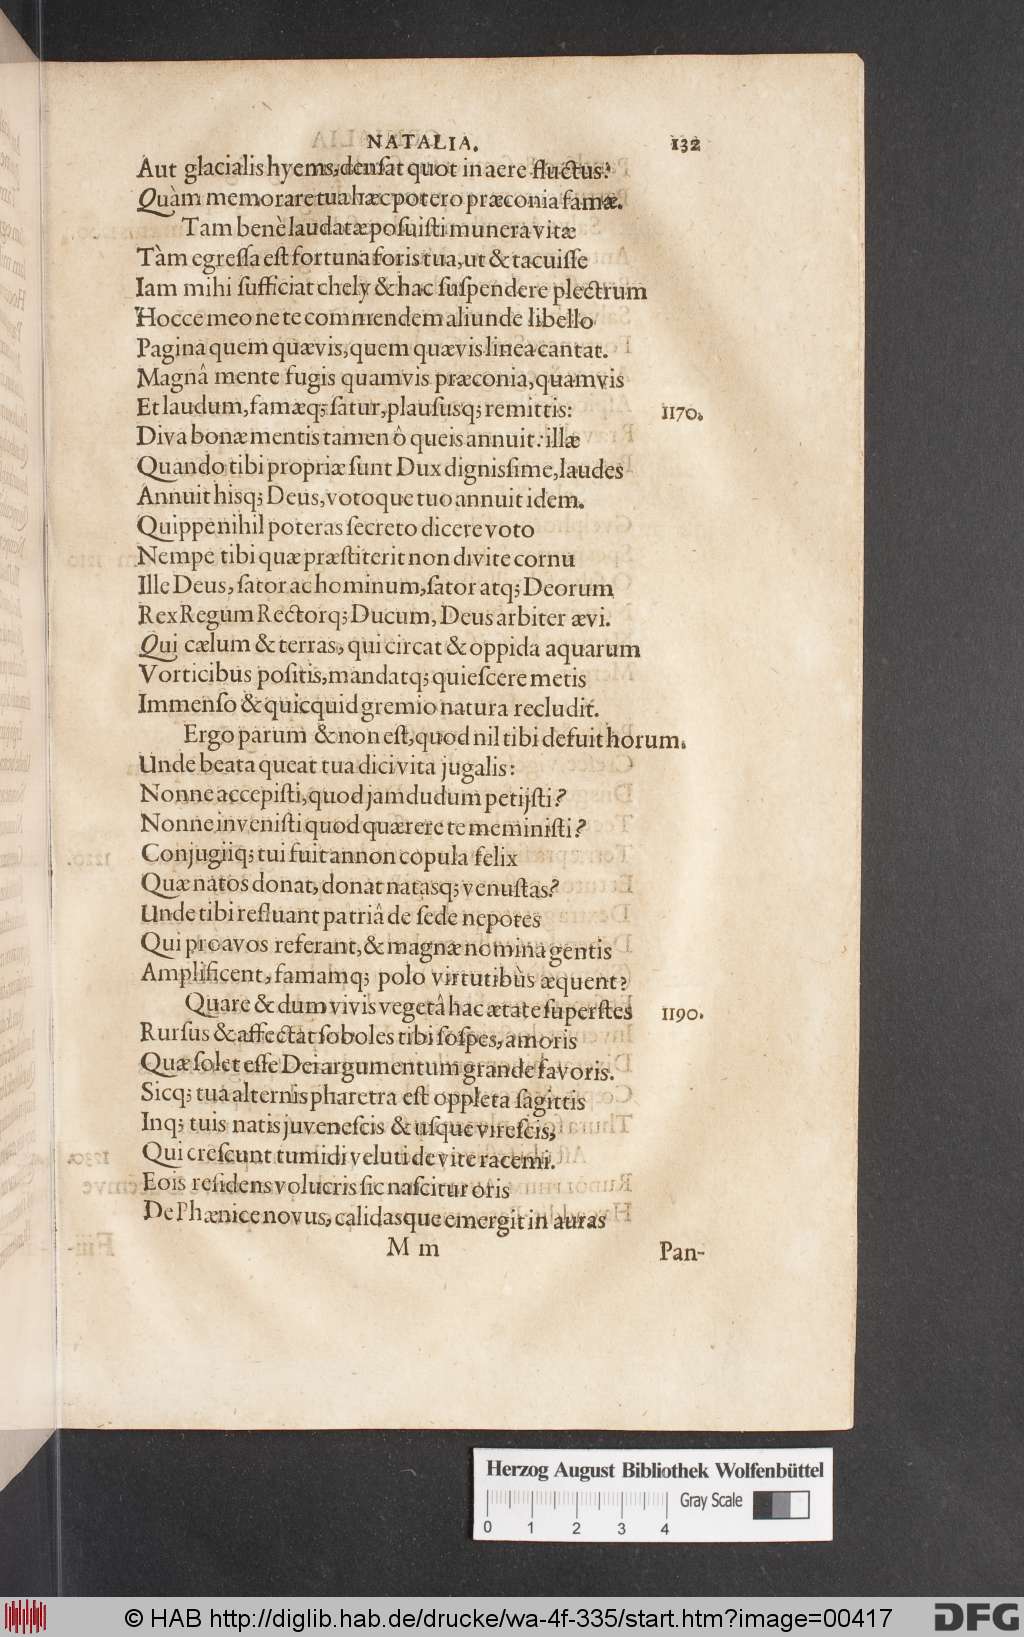 NATALIA. 132
Aut glacialis hyems, densat quot in aere fluctus?
Quàm memorare tua hæc potero præconia famæ.
Tam benè laudatæ posuisti munera vitæ
Tàm egressa est fortuna foris tua, ut & tacuisse
Iam mihi sufficiat chely & hac suspendere plectrum
Hocce meo ne te commendem aliunde libello
Pagina quem quævis, quem quævis linea cantat.
Magnâ mente fugis quamvis præconia, quamvis
Et laudum, famæq; satur, plaususq; remittis: 1170.
Diva bonæ mentis tamen ô queis annuit: illæ
Quando tibi propriæ sunt Dux dignissime, laudes
Annuit hisq; Deus, votoque tuo annuit idem.
Quippe nihil poteras secreto dicere voto
Nempe tibi quæ præstiterit non divite cornu
Ille Deus, sator ac hominum, sator atq; Deorum
Rex Regum Rectorq; Ducum, Deus arbiter ævi.
Qui cælum & terras, qui circat & oppida aquarum
Vorticibus positis, mandatq; quiescere metis
Immenso & quicquid gremio natura recludit.
Ergo parum & non est, quod nil tibi defuit horum.
Unde beata queat tua dici vita jugalis:
Nonne accepisti, quod jamdudum petijsti?
Nonne invenisti quod quærere te meministi?
Conjugiiq; tui fuit annon copula felix
Quæ natos donat, donat natasq; venustas?
Unde tibi refluant patriâ de sede nepotes
Qui proavos referant, & magnæ nomina gentis
Amplificent, famamq; polo virtutibùs æquent?
Quare & dum vivis vegetâ hac ætate superstes 1190.
Rursus & affectat soboles tibi sospes, amoris
Quæ solet esse Dei argumentum grande favoris.
Sicq; tua alternis pharetra est oppleta sagittis
Inq; tuis natis juvenescis & usque virescis,
Qui crescunt tumidi veluti de vite racemi.
Eois residens volucris sic nascitur oris
De Phænice novus, calidasque emergit in auras
M m Pan-
Herzog August Bibliothek Wolfenbüttel
Gray Scale
0 1 2 3 4
© HAB http://diglib.hab.de/drucke/wa-4f-335/start.htm?image=00417
DFG